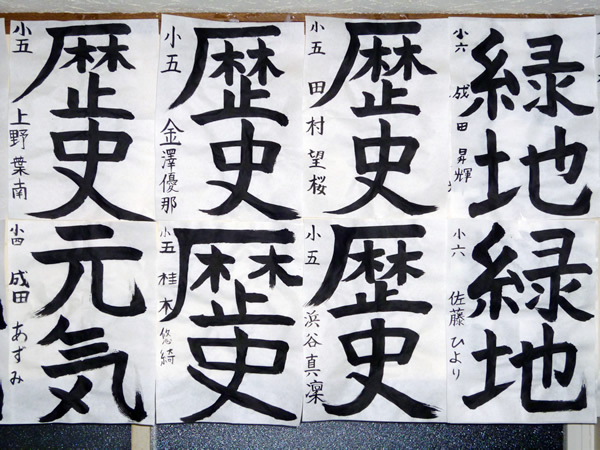 緑地
小六 成田 昇輝
歴史
小五 田村 望桜
歴史
小五 金澤優那
歴史
小五 上野 葉南
緑地
小六 佐藤 ひより
歴史
小五 浜谷 真凜
歴史
小五 桂木 悠綺
元気
小四 成田 あずみ